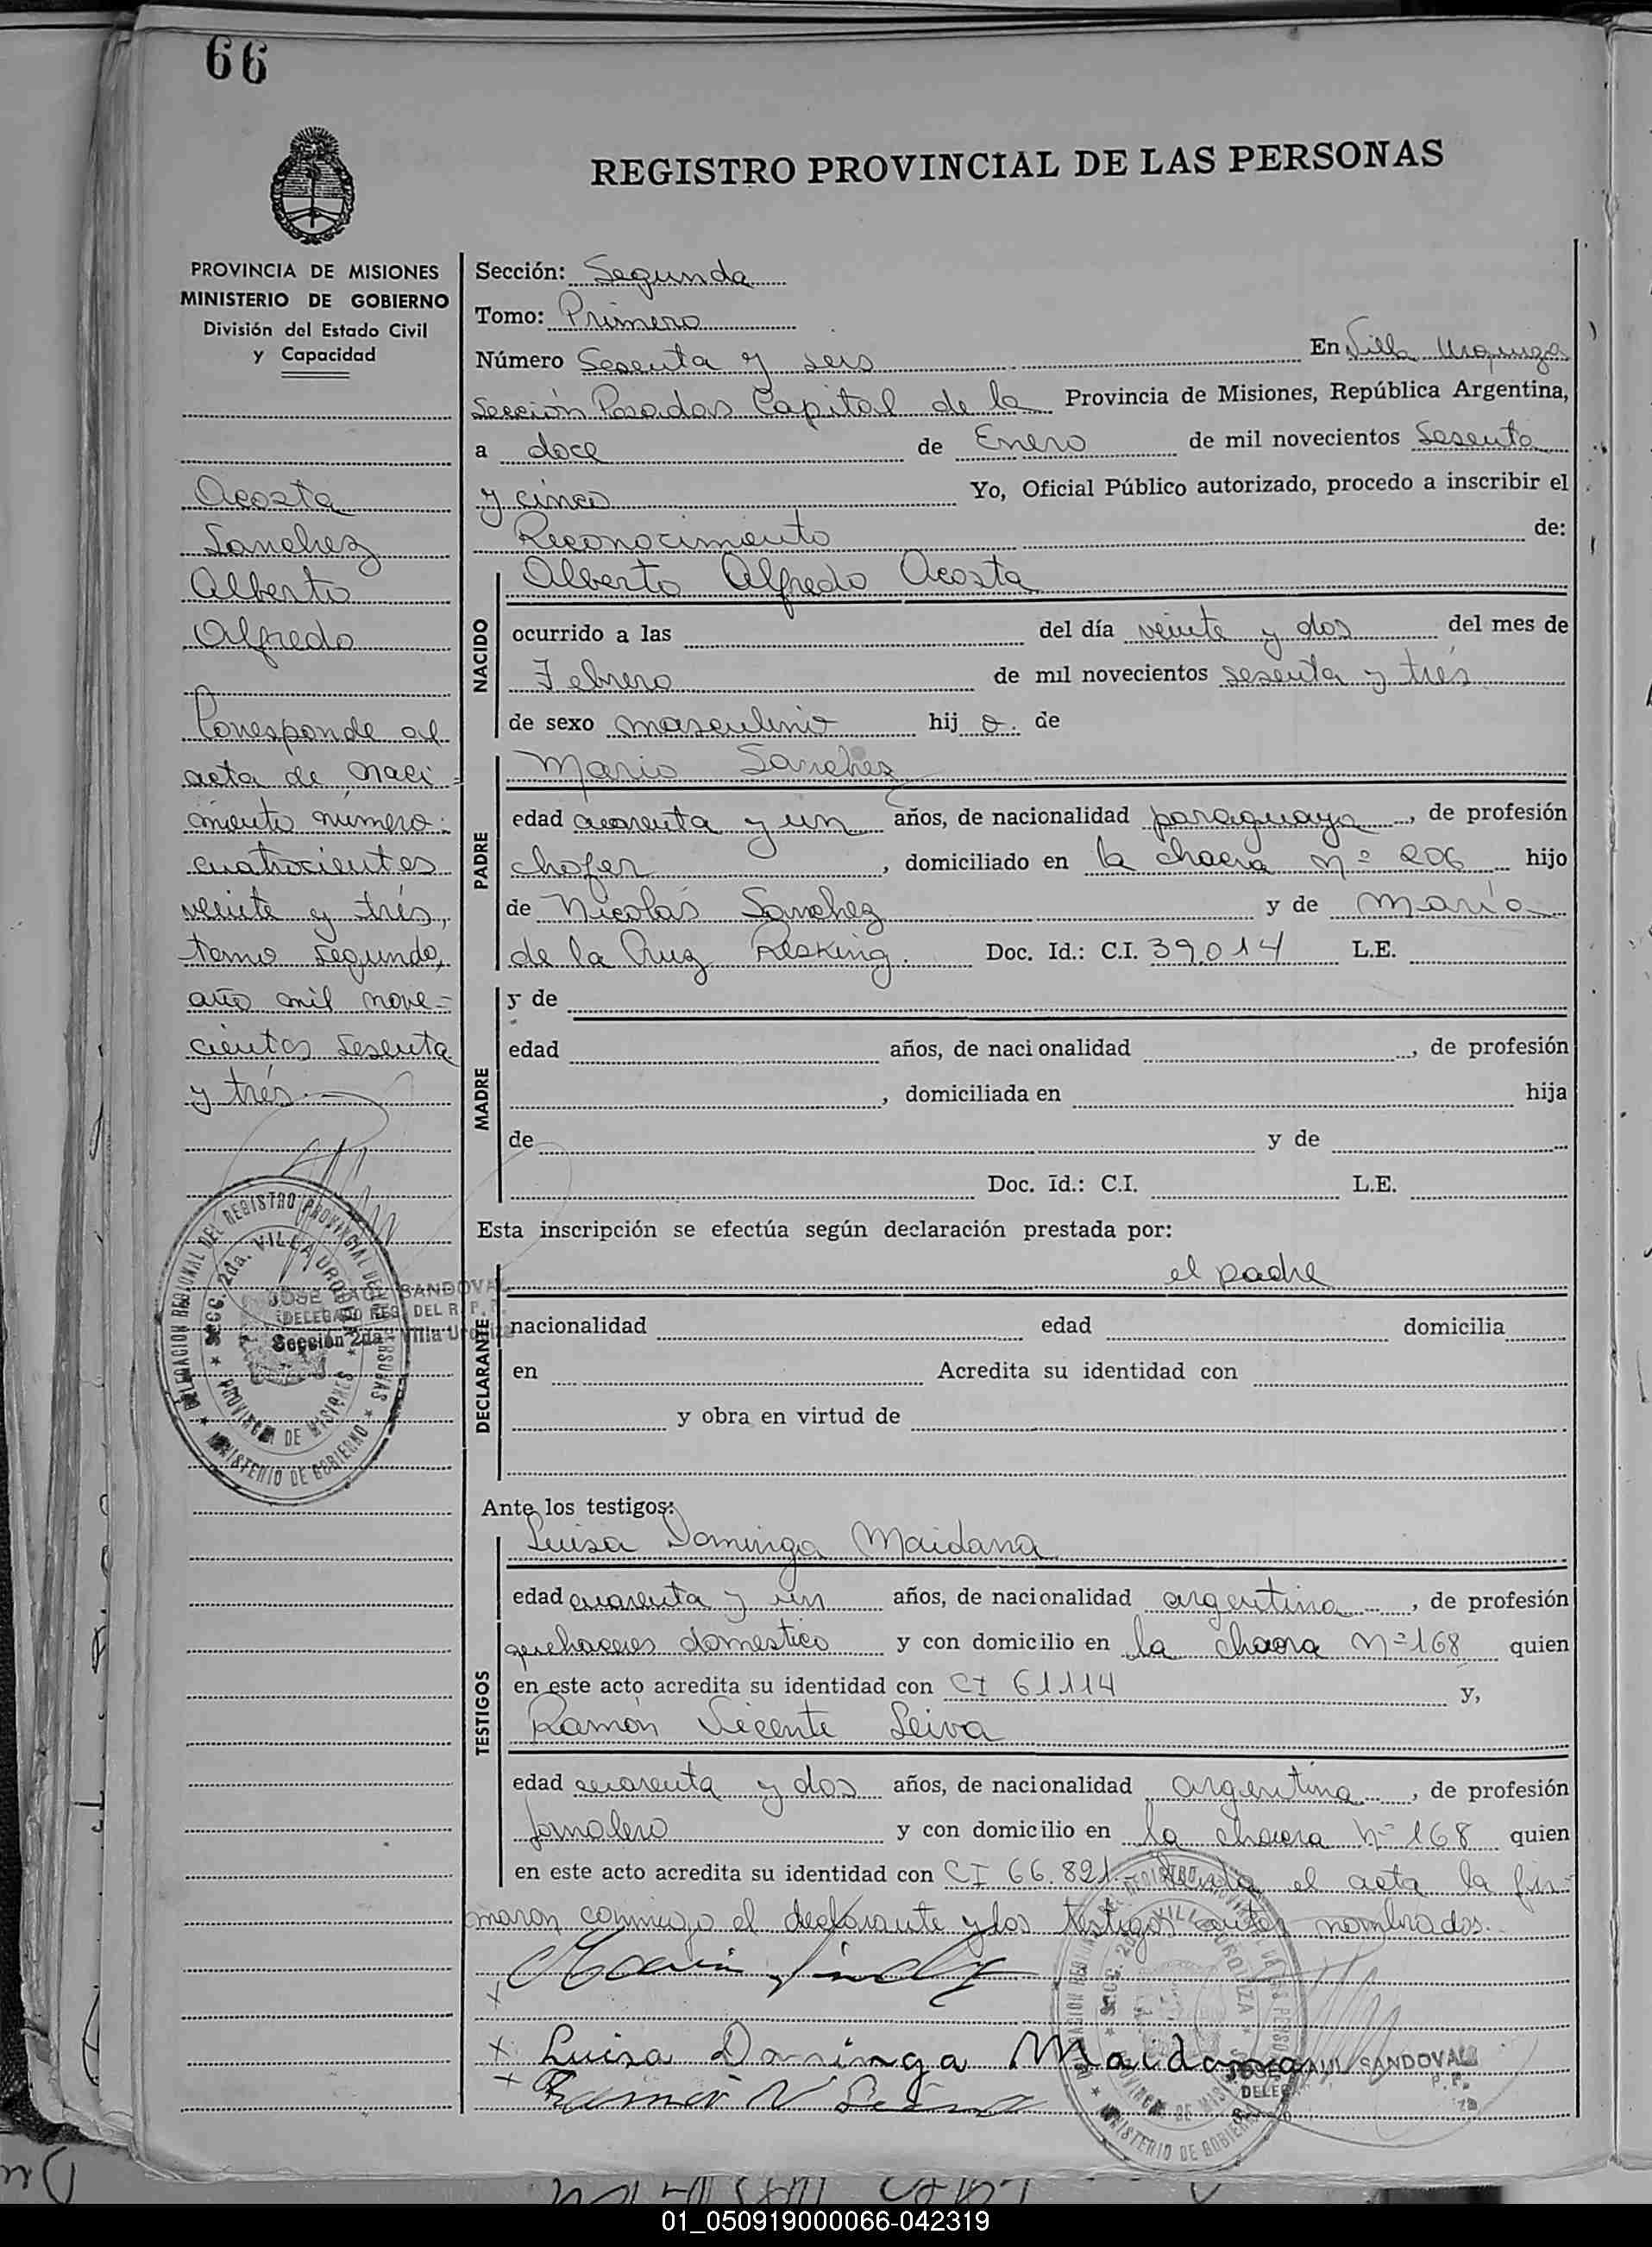 66
REGISTRO PROVINCIAL DE LAS PERSONAS
PROVINCIA DE MISIONES
MINISTERIO DE GOBIERNO
División del Estado Civil
y Capacidad
Acosta
Sanchez
Alberto
Alfredo
Corresponde al
acta de naci-
miento número:
cuatrocientos
veinte y trés,
tomo segundo,
año mil nove-
cientos sesenta
y trés.
DELEGACION REGIONAL DEL REGISTRO PROVINCIAL DE LAS PERSONAS
SECC. 2da. VILLA URQUIZA
PROVINCIA DE MISIONES
MINISTERIO DE GOBIERNO
JOSE RAUL SANDOVAL
DELEGADO REG. DEL R. P. P.
Sección 2da - Villa Urquiza
Sección: Segunda
Tomo: Primero
Número Sesenta y seis En Villa Urquiza
Sección Posadas Capital de la Provincia de Misiones, República Argentina,
a doce de Enero de mil novecientos Sesenta
y cinco Yo, Oficial Público autorizado, procedo a inscribir el
Reconocimiento de:
NACIDO
Alberto Alfredo Acosta
ocurrido a las del día veinte y dos del mes de
Febrero de mil novecientos sesenta y trés
de sexo masculino hij o. de
PADRE
Mario Sanchez
edad cuarenta y un años, de nacionalidad paraguaya, de profesión
chofer, domiciliado en la chacra Nº 206 hijo
de Nicolás Sanchez y de María
de la Cruz Resking. Doc. Id.: C.I. 39.014 L.E.
MADRE
y de
edad años, de nacionalidad , de profesión
, domiciliada en hija
de y de
Doc. Id.: C.I. L.E.
Esta inscripción se efectúa según declaración prestada por:
DECLARANTE
el padre
nacionalidad edad domicilia
en Acredita su identidad con
y obra en virtud de
Ante los testigos:
TESTIGOS
Luisa Dominga Maidana
edad cuarenta y un años, de nacionalidad argentina, de profesión
quehaceres domestico y con domicilio en la chacra Nº 168 quien
en este acto acredita su identidad con CI 61114 y,
Ramón Vicente Leiva
edad cuarenta y dos años, de nacionalidad argentina, de profesión
Jornalero y con domicilio en la chacra Nº 168 quien
en este acto acredita su identidad con CI 66.821. Leida el acta la fir-
maron conmigo el declarante y los testigos antes nombrados.
Mario Sanchez
Luisa Dominga Maidana
Ramon V Leiva
DELEGACION REGIONAL DEL REGISTRO PROVINCIAL DE LAS PERSONAS
SECC. 2da. VILLA URQUIZA
PROVINCIA DE MISIONES
MINISTERIO DE GOBIERNO
JOSE RAUL SANDOVAL
01_050919000066-042319